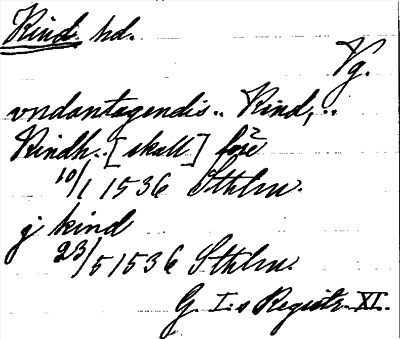 Kind hd.
Vg.
vndantagendis .. Kind, ..
Kindh.. [skall] före
10/1 1536 Sthlm.
j kind
23/5 1536 Sthlm.
G I:s Registr. XI.